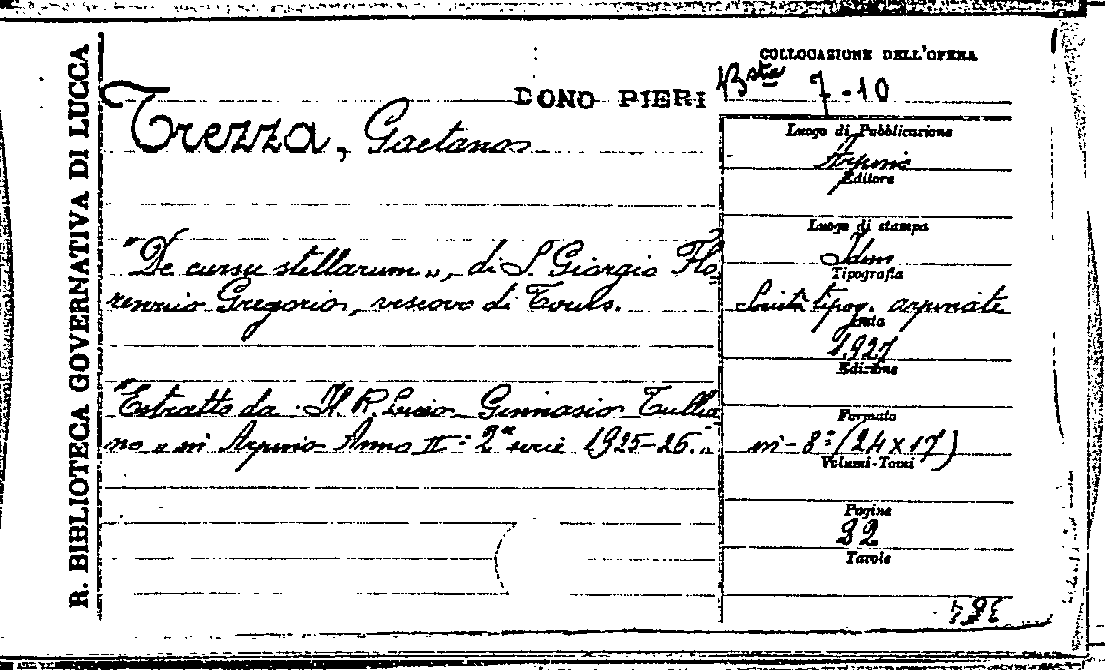 R. BIBLIOTECA GOVERNATIVA DI LUCCA
COLLOCAZIONE DELL'OPERA
DONO PIERI
Bsta 7-10
Trezza, Gaetano
"De cursu stellarum", di S. Giorgio Flo
rennio Gregorio, vescovo di Tours.
"Estratto da Il R. Liceo Ginnasio Tullia
no in Arpino Anno II: 2a serie 1925-26."
Luogo di Pubblicazione
Arpino
Editore
Luogo di stampa
Idem
Tipografia
Società tipog. arpinate
Data
1927
Edizione
Formato
in-8° (24x17)
Volumi-Tomi
Pagine
22
Tavole